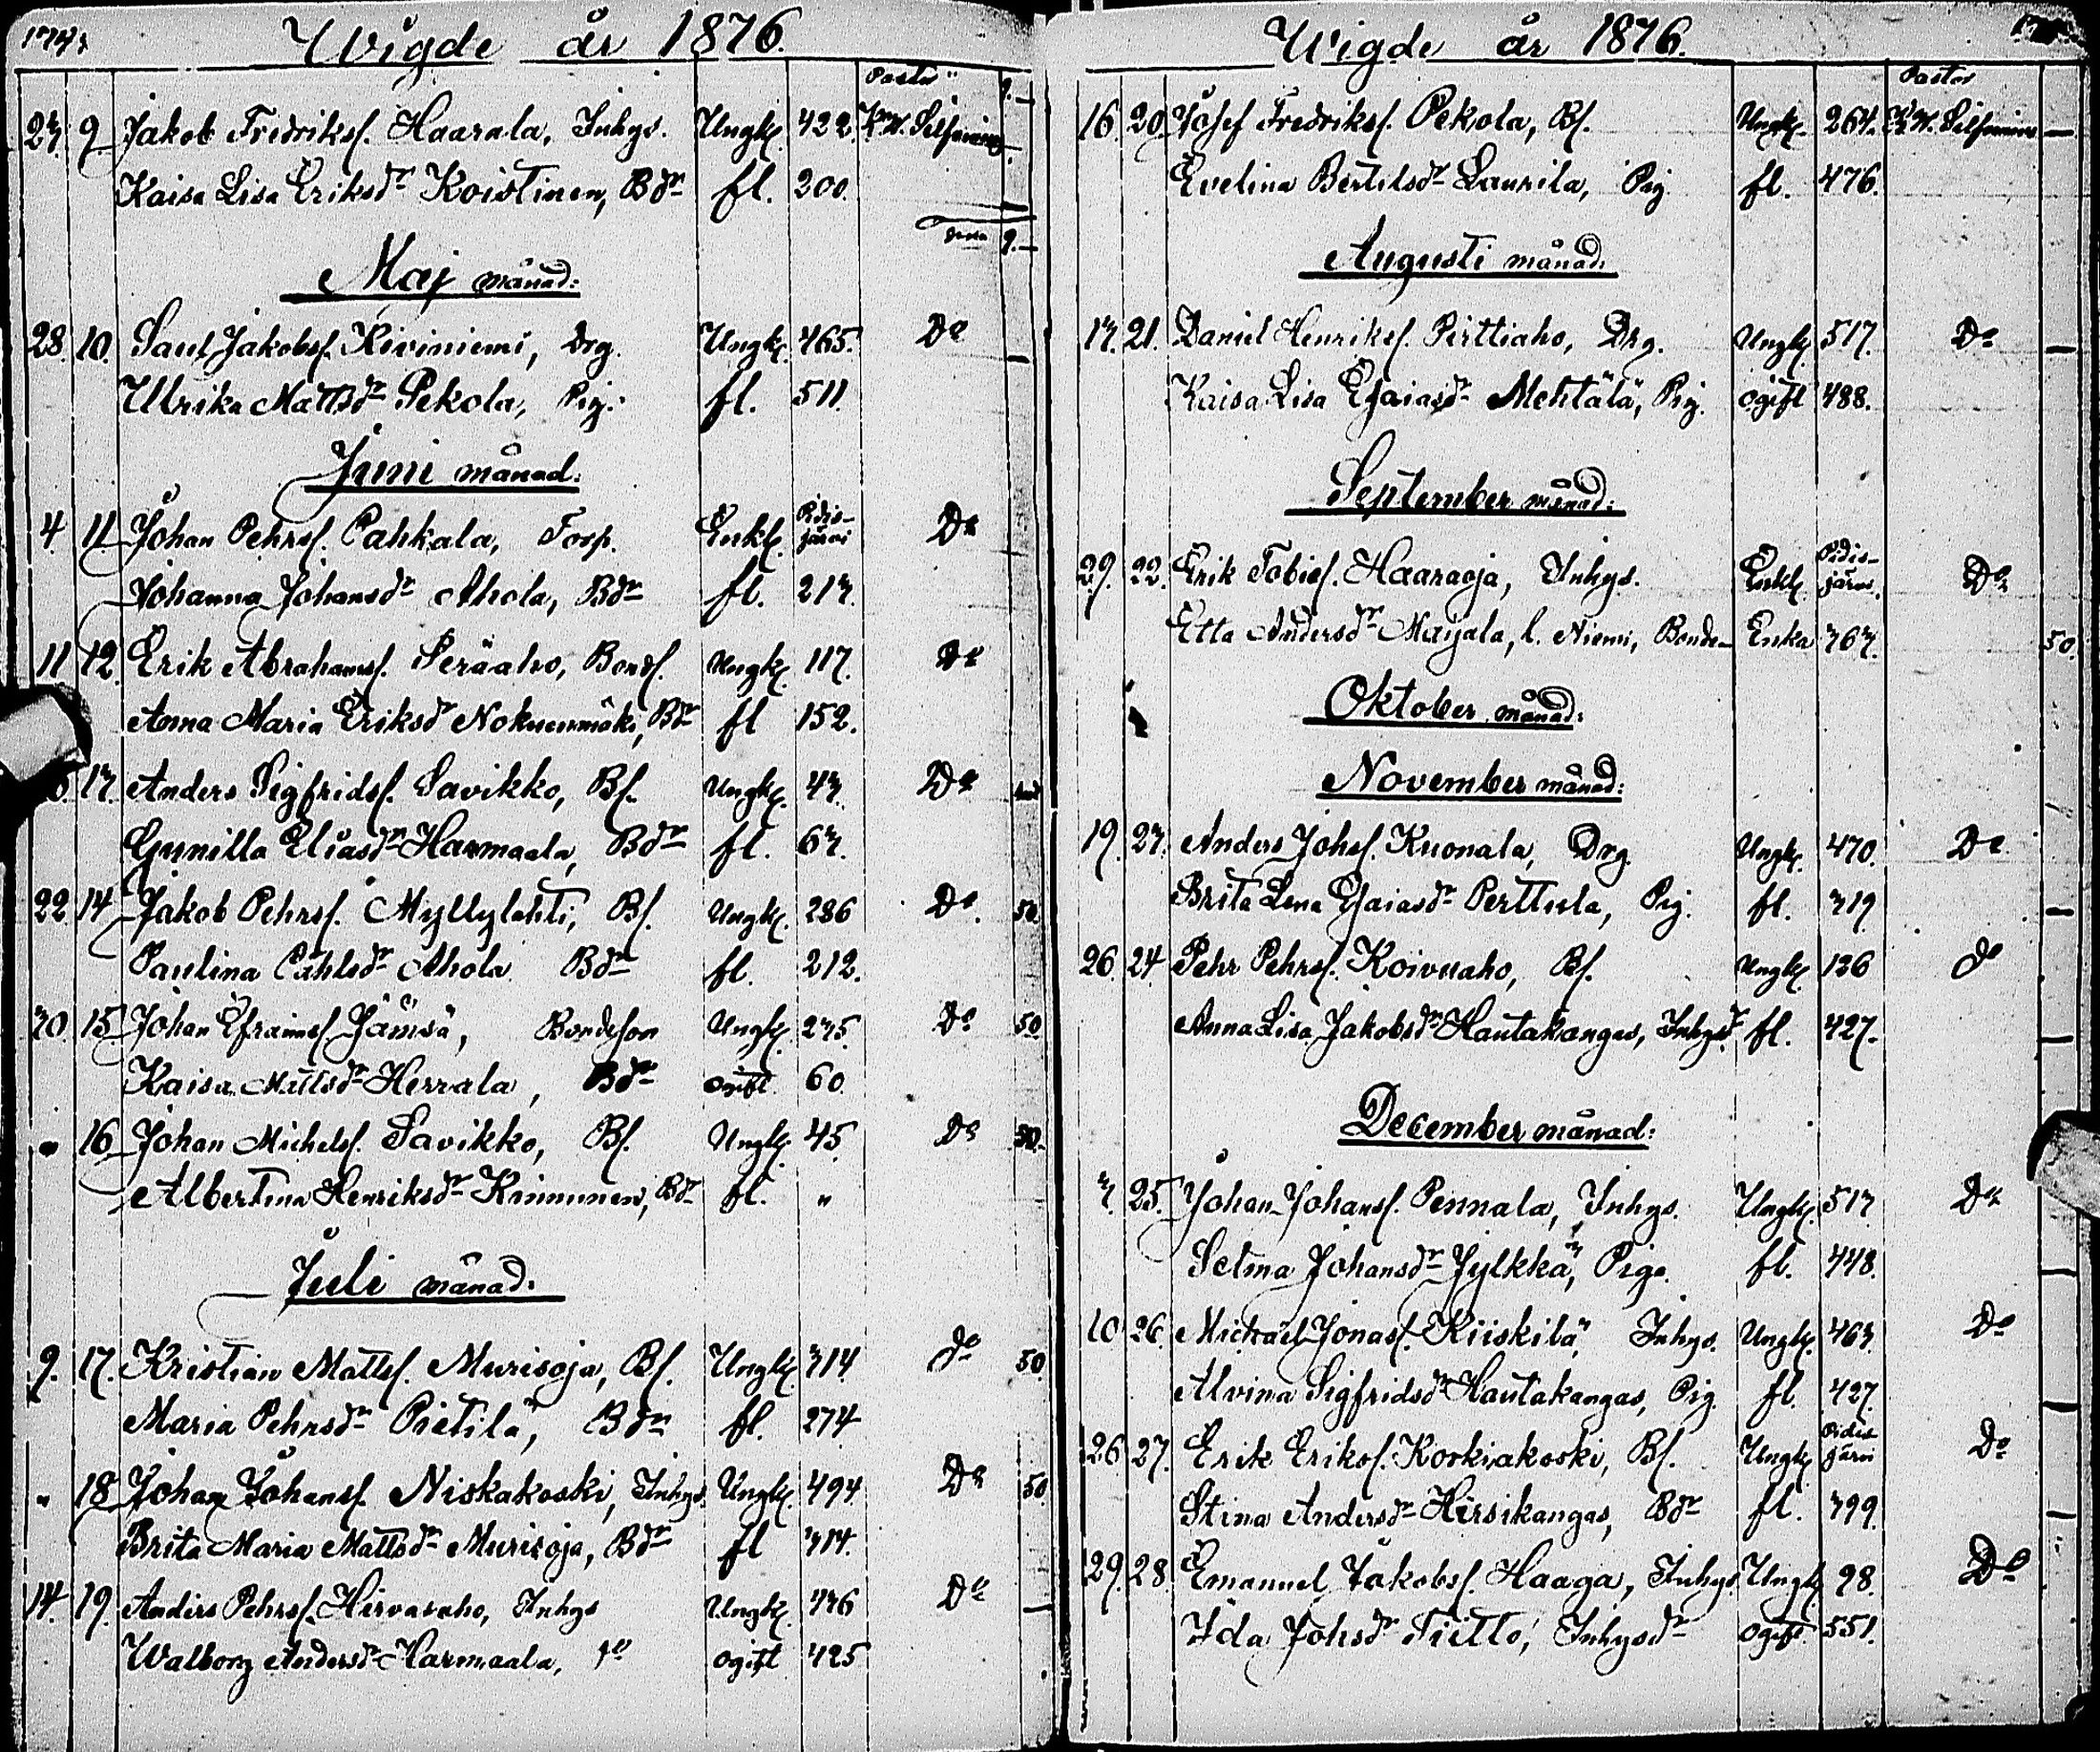 Wigde år 1876.
Pastor
23. 9. Jakob Fredriks. Haarala, Inhys. Ungk. 422.
Kaisa Lisa Eriksdr Koistinen, Bdr fl. 200.
Maj månad:
28. 10. Saul Jakobs. Kiviniemi, Drg. Ungk. 465. Do
Ulrika Mattsdr Pekola, Pig. fl. 511.
Juni månad:
4. 11. Johan Pehrs. Pahkala, Torp. Enkl. Pidisjärvi Do
Johanna Johansdr Ahola, Bdr fl. 213.
11. 12. Erik Abrahams. Peräaho, Bonds. Ungk. 117. Do
Anna Maria Eriksdr Nokuenmäki, Bdr fl 152.
13. Anders Sigfrids. Savikko, Bs. Ungk. 43. Do
Gunilla Eliasdr Harmaala, Bdr fl. 63.
22. 14. Jakob Pehrs. Myllylahti, Bs. Ungk. 286 Do. 50
Paulina Påhlsdr Ahola Bdr fl. 212.
30. 15. Johan Efraims. Jämsä, Bondeson Ungk. 235. Do 50
Kaisa Mattsdr Herrala, Bdr ogift 60.
" 16. Johan Michels. Savikko, Bs. Ungk. 45. Do 50.
Albertina Henriksdr Kinnunen, Bdr fl. "
Juli månad:
9. 17. Kristian Matts. Murisoja, Bs. Ungk. 314 do 50
Maria Pehrsdr Pietilä, Bdr fl. 274
" 18. Johan Johans. Niskakoski, Inhys. Ungk. 494 Do 50
Brita Maria Mattsdr Murisoja, Bdr fl 314.
14. 19. Anders Pehrs. Hirvasaho, Inhys Ungk. 336 Do
Walborg Andersdr Harmaala, do ogift 425
Wigde år 1876.
Pastor
16. 20. Josef Fredriks. Pekola, Bs. Ungk. 264.
Evelina Bertilsdr Laurila, Pig. fl. 476.
Augusti månad:
13. 21. Daniel Henriks. Perttiaho, Drg. Ungk. 517. Do
Kaisa Lisa Esaiasdr Mehtälä, Pig. ogift 488.
September månad:
29. 22. Erik Tobias. Haaraoja, Inhys. Enkl. Pidisjärvi Do
Etta Andersdr Majala, l. Niemi, Bonde- Enka 363. 50.
Oktober månad:
November månad:
19. 23. Anders Johs. Kuonala, Drg Ungk. 470. Do
Brita Lena Esaiasdr Perttula, Pig. fl. 319
26. 24. Pehr Pehrs. Koivuaho, Bs. Ungk. 126 do
Anna Lisa Jakobsdr Hautakangas, Inhysdr fl. 427.
December månad:
3. 25. Johan Johans. Pennala, Inhys. Ungk. 513 Do
Selma Johansdr Jylkkä, Piga. fl. 448.
10 26. Michael Jonas. Kiiskilä, Inhys. Ungk. 463. Do
Alvina Sigfridsdr Hautakangas, Pig fl. 427.
26 27. Erik Eriks. Korkiakoski, Bs. Ungk. Pidisjärvi Do
Stina Andersdr Hirsikangas, Bdr fl. 399.
29. 28 Emanuel Jakobs. Haaga, Inhys. Ungk. 98. Do
Ida Johsdr Tiitto, Inhysdr ogift 551.